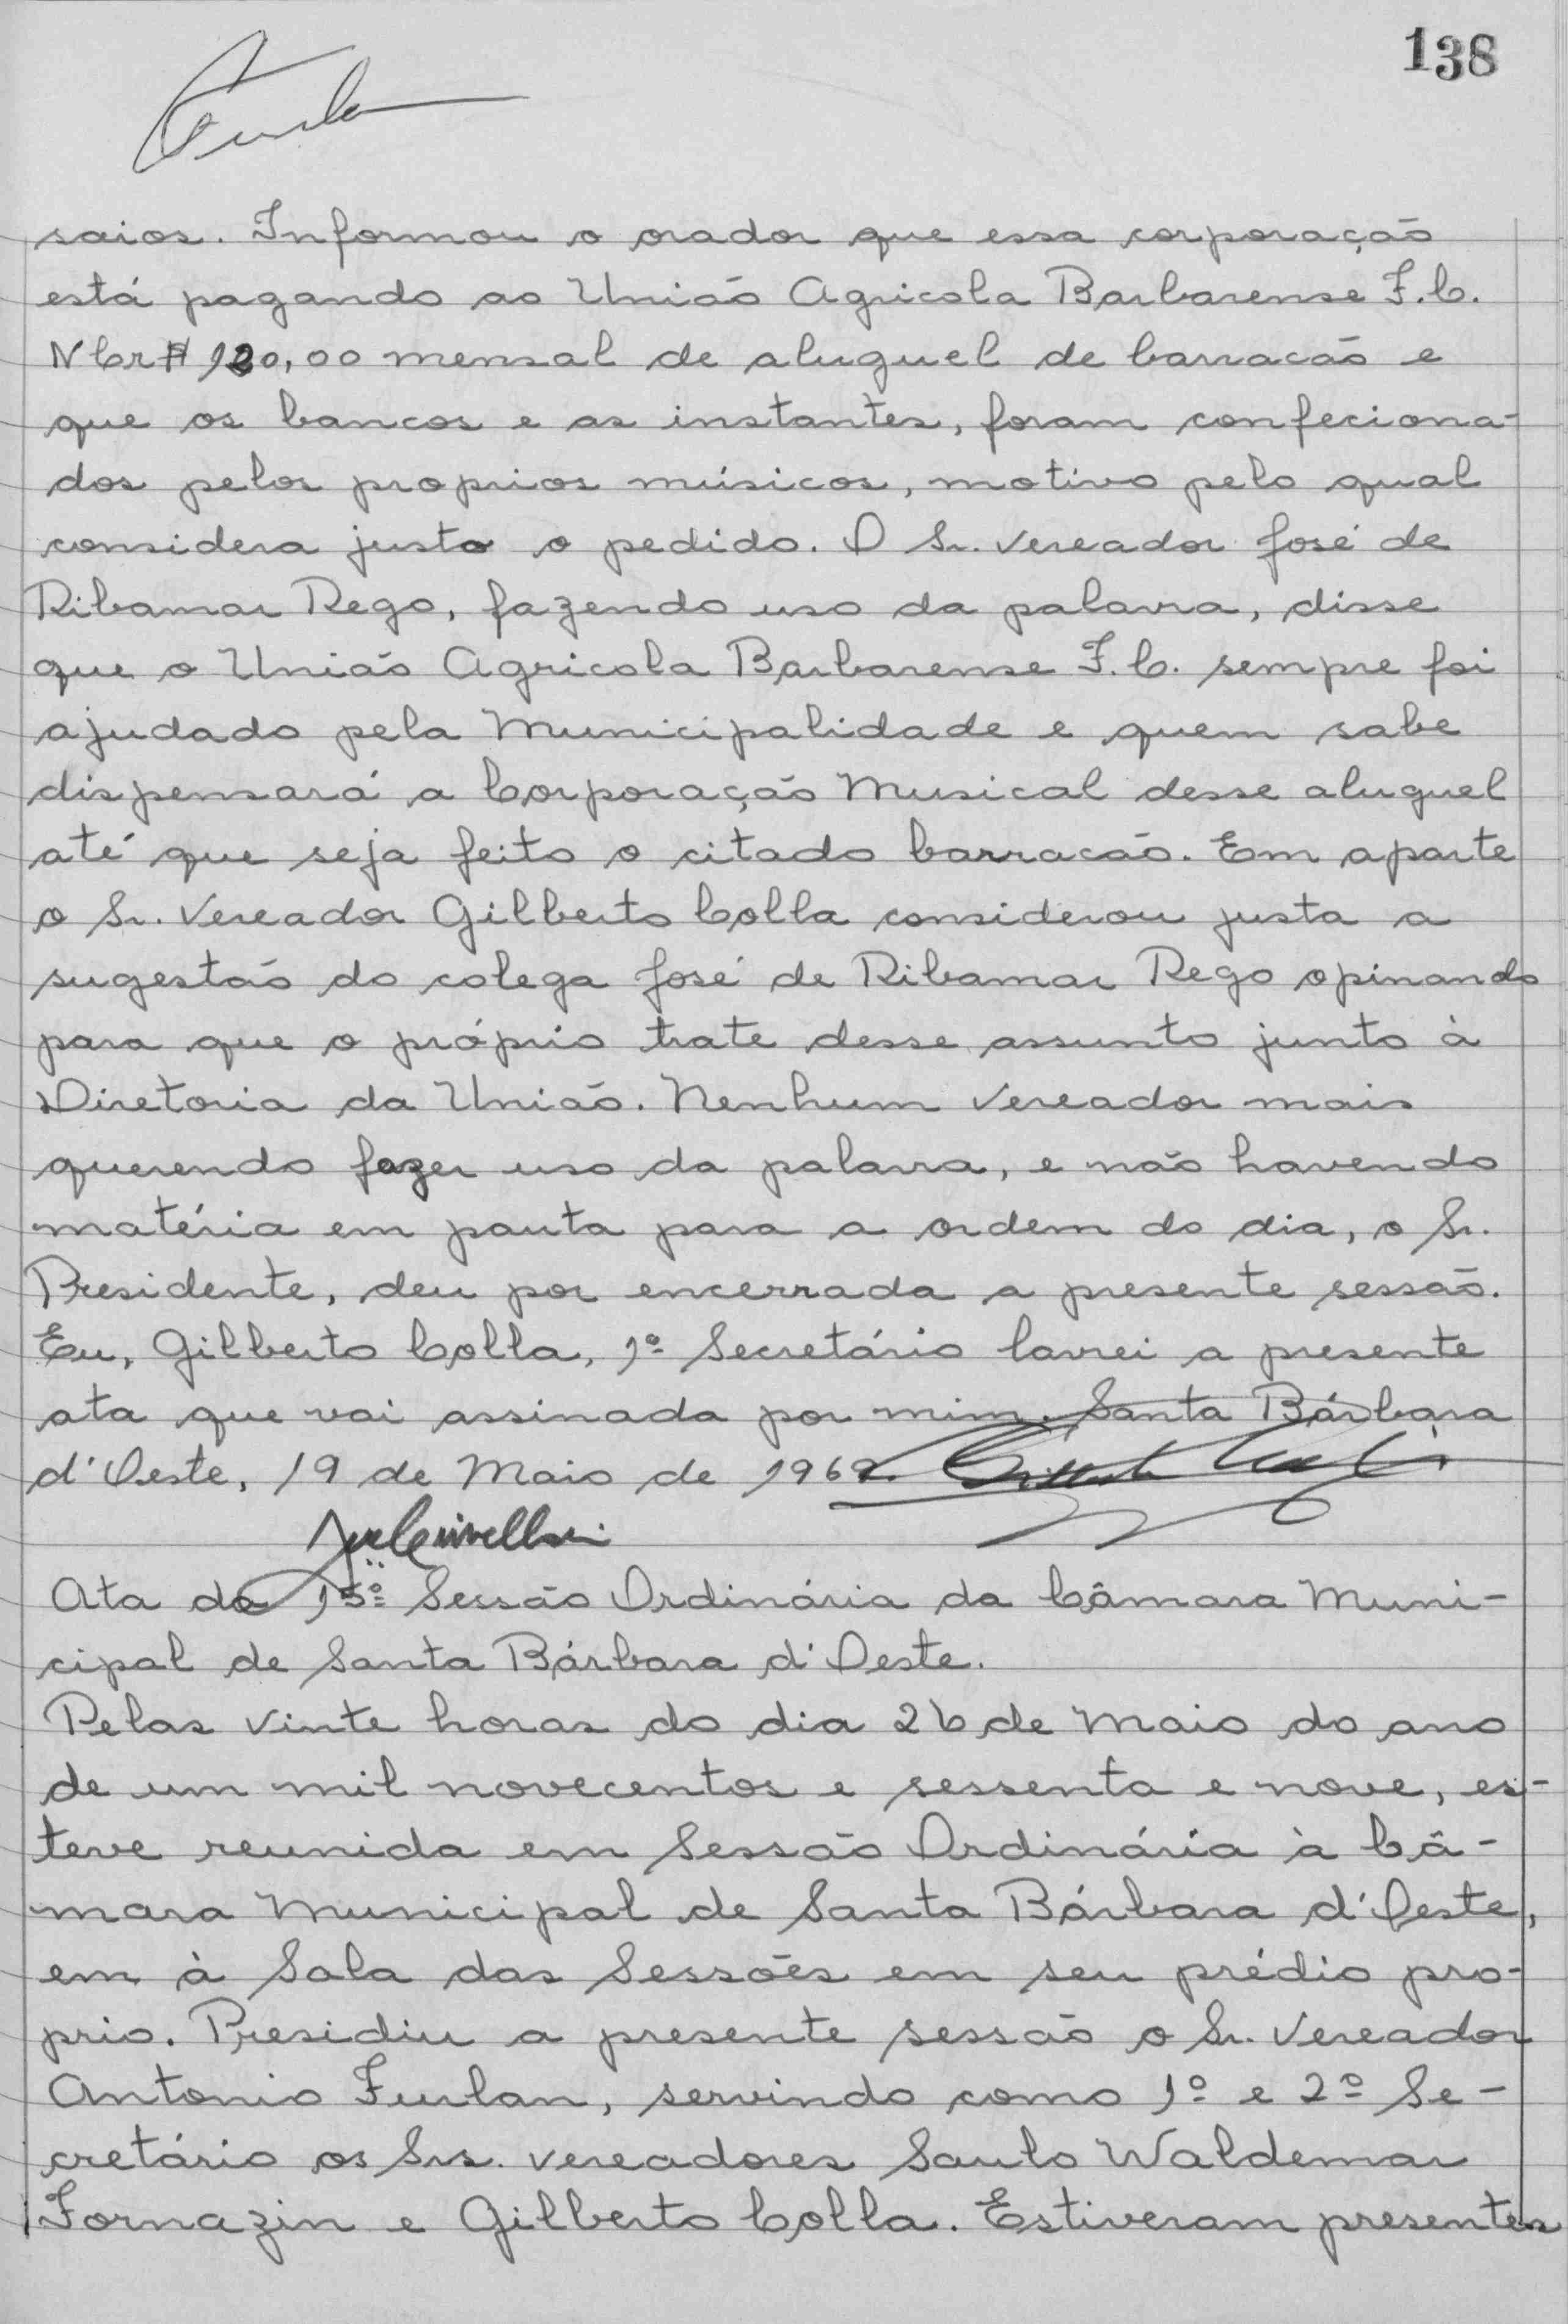 138
saios. Informou o orador que essa corporação
está pagando ao União Agricola Barbarense F.C.
NCr$ 120,00 mensal de aluguel de barracão e
que os bancos e as instantes, foram confeciona-
dos pelos proprios músicos, motivo pelo qual
considera justo o pedido. O Sr. Vereador José de
Ribamar Rego, fazendo uso da palavra, disse
que o União Agricola Barbarense F.C. sempre foi
ajudado pela Municipalidade e quem sabe
dispensará a Corporação Musical desse aluguel
até que seja feito o citado barracão. Em aparte
o Sr. Vereador Gilberto Colla considerou justa a
sugestão do colega José de Ribamar Rego opinando
para que o próprio trate desse assunto junto à
Diretoria da União. Nenhum Vereador mais
querendo fazer uso da palavra, e não havendo
matéria em pauta para a ordem do dia, o Sr.
Presidente, deu por encerrada a presente sessão.
Eu, Gilberto Colla, 1º Secretário lavrei a presente
ata que vai assinada por mim. Santa Bárbara
d'Oeste, 19 de Maio de 1969.
Ata da 15ª Sessão Ordinária da Câmara Muni-
cipal de Santa Bárbara d'Oeste.
Pelas vinte horas do dia 26 de Maio do ano
de um mil novecentos e sessenta e nove, es-
teve reunida em Sessão Ordinária à Câ-
mara Municipal de Santa Bárbara d'Oeste,
em à Sala das Sessões em seu prédio pro-
prio. Presidiu a presente sessão o Sr. Vereador
Antonio Furlan, servindo como 1º e 2º Se-
cretário os Srs. vereadores Saulo Waldemar
Fornazin e Gilberto Colla. Estiveram presentes